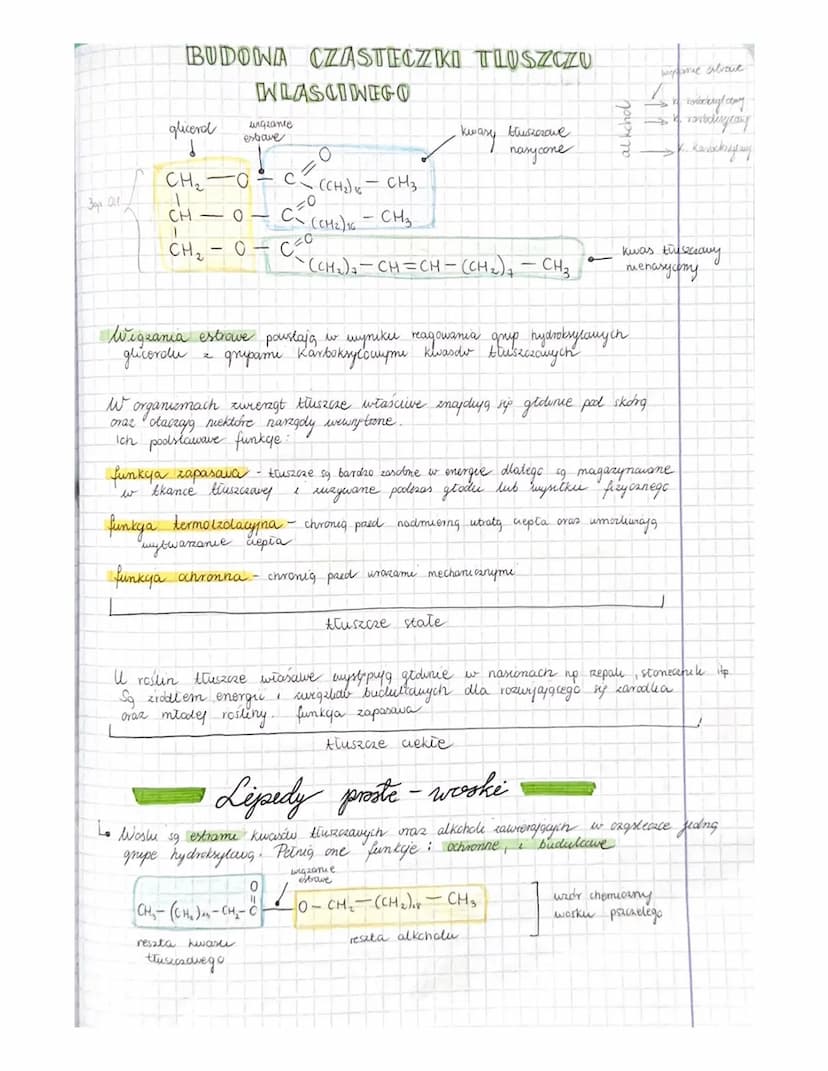 BUDOWA CZASTECZKI TŁUSZCZU
WŁASCIWEGO
glicerol
wiązanie
estrowe
kwasy tłuszczowe
nasycone
wiązanie estrowe
alkohol
k. karboksylowy
k. karboksylowy
k. karboksylowy
CH₂ — O — C = O (CH₂)₁₆ — CH₃
CH — O — C = O (CH₂)₁₆ — CH₃
CH₂ — O — C = O (CH₂)₇ — CH = CH — (CH₂)₇ — CH₃
kwas tłuszczowy
nienasycony
Wiązania estrowe powstają w wyniku reagowania grup hydroksylowych
glicerolu z grupami karboksylowymi kwasów tłuszczowych
W organizmach zwierząt tłuszcze właściwe znajdują się głównie pod skórą
oraz otaczają niektóre narządy wewnętrzne.
Ich podstawowe funkcje:
funkcja zapasowa - tłuszcze są bardzo zasobne w energię dlatego są magazynowane
w tkance tłuszczowej i zużywane podczas głodu lub wysiłku fizycznego
funkcja termoizolacyjna - chronią przed nadmierną utratą ciepła oraz umożliwiają
wytwarzanie ciepła
funkcja ochronna - chronią przed urazami mechanicznymi
tłuszcze stałe
U roślin tłuszcze właściwe występują głównie w nasionach np rzepak, słonecznik itp
Są źródłem energii i związków budulcowych dla rozwijającego się zarodka
oraz młodej rośliny. funkcja zapasowa
tłuszcze ciekłe
Lipedy proste - woski
Woski są estrami kwasów tłuszczowych oraz alkoholi zawierających w cząsteczce jedną
grupę hydroksylową. Pełnią one funkcje: ochronne, i budulcowe
wiązanie
estrowe
O
CH₃ — (CH₂)₁₃ — CH₂ — C — O — CH₂ — (CH₂)₂₈ — CH₃
wzór chemiczny
wosku pszczelego
reszta kwasu
tłuszczowego
reszta alkoholu